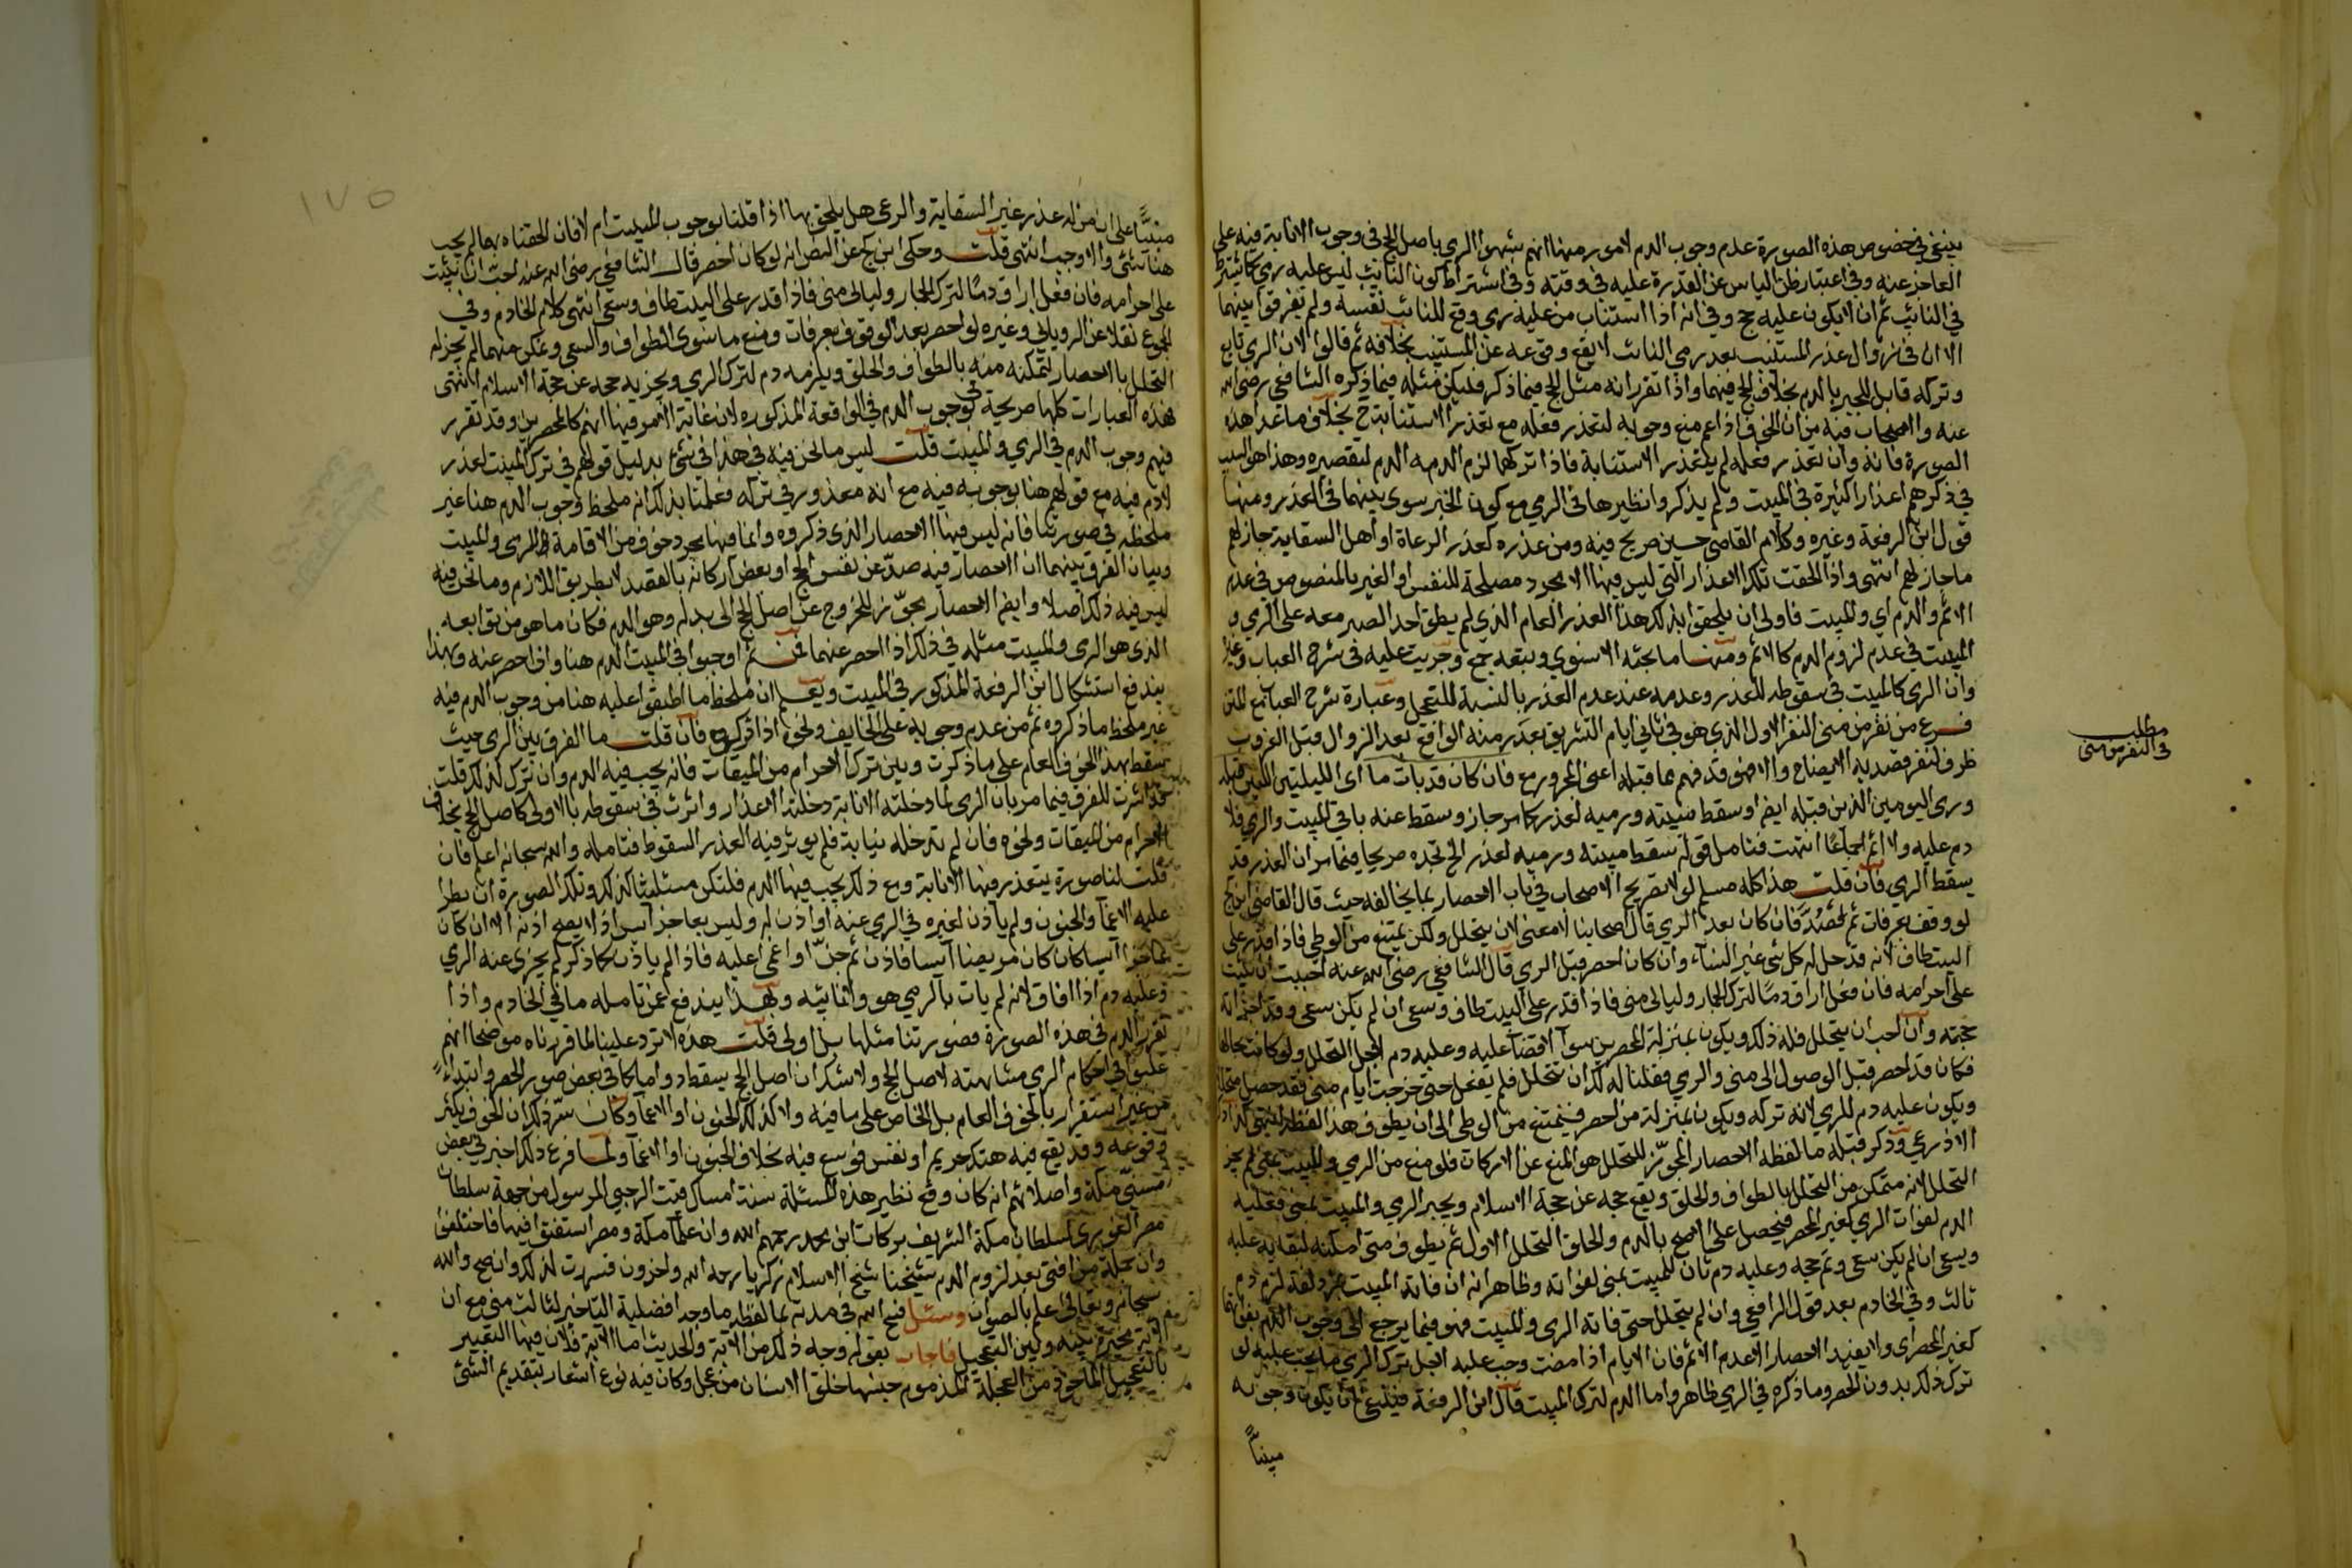 ينبغي في خصوص هذه الصورة عدم وجوب الدم لامور منها انهم شبهوا الرمي باصل الحج في وجوب الانابة فيه على
العاجز عنه وفي اعتبار ظن الياس عن القدرة عليه في وقته وفي اشتراط كون النايب ليس عليه رمي كما يشترط
في النائب ثم ان لا يكون عليه حج وفي انه اذا استناب من عليه رمي وقع للنائب نفسه ولم يفرقوا بينهما
الا ان في زوال عذر المستنيب بعد رمي النائب لا يقع وقوعه عن المستنيب بخلافه ثم قالوا لان الرمي تابع
وتركه قابل للجبر بالدم بخلاف الحج فيهما واذا تقرر انه مثل الحج فيما ذكر فليكن مثله فيما ذكره الشافعي رضي الله
عنه والاصحاب فيه من ان الخوف اذا عم منع وجوبه لتعذر فعله مع تعذر الاستنابة ح بخلاف ما عدا هذه
الصورة فانه وان تعذر فعله لم يتعذر الاستنابة فاذا تركها لزم الدم لتقصيره وهذا هو السبب
في ذكرهم اعذارا كثيرة في المبيت ولم يذكروا نظيرها في الرمي مع كون الخبر سوى بينهما في العذر ومنها
قول ابن الرفعة وغيره وكلام القاضي حسين صريح فيه ومن عذره كعذر الرعاة او اهل السقاية جاز لهم
ما جاز لهم انتهى واذا الحقت تلك الاعذار التي ليس فيها الا مجرد مصلحة للنفس او الغير بالمنصوص في عدم
الاثم والدم اي والمبيت فاولى ان يلحقوا بذلك هذا العذر العام الذي لم يطق احد الصبر معه على الرمي و
المبيت في عدم لزوم الدم كالاثم ومنها ما بحثه الاسنوي وتبعه جمع وجريت عليه في شرح العباب وغيره
وان الرمي كالمبيت في سقوطه للعذر وعدمه عند عدم العذر بالنسبة للتعجل وعبارة شرح العباب مع المتن
فرع من نفر من منى النفر الاول الذي هو في ثاني ايام التشريق بعذر منه الواقع بعد الزوال قبل الغروب
ظرف لنفر قصد به الايضاح والا فهو قد فهم مما قبله اعني المجرور مع فان كان قد بات ما اي الليلتين اللتين قبله
ورمى اليومين الذين قبله ايضا وسقط مبيته ورميه لعذر كما مر جاز وسقط عنه باقي المبيت والرمي فلا
دم عليه ولا اثم اجماعا انتهت فتامل قوله سقط مبيته ورميه لعذر الخ تجده صريحا فيما مر ان العذر قد
يسقط الرمي فان قلت هذا كله مسلم لولا تصريح الاصحاب في باب الاحصار بما يخالفه حيث قال القاضي ابن كج
لو وقف بعرفات ثم احصر فان كان بعد الرمي قال اصحابنا لا معنى لان يتحلل ولكن يمتنع من الوطي فاذا قدر على
البيت طاف لانه قد حل له كل شي غير النساء وان كان احصر قبل الرمي قال الشافعي رضي الله عنه احببت ان يثبت
على احرامه فان فعل اراق دما لترك الجمار وليالي منى فاذا قدر على البيت طاف وسعى ان لم يكن سعى وقد اجزاته
حجته وان احب ان يتحلل فله ذلك ويكون بمنزلة المحصرين سوا لا قضا عليه وعليه دم لاجل التحلل ولو كانت بحالها
فكان قد احصر قبل الوصول الى منى والرمي فقلنا له لك ان تتحلل فلم يفعل حتى خرجت ايام منى فقد حصل متحللا
ويكون عليه دم للرمي لانه تركه ويكون بمنزلة من احصر فيمتنع من الوطي الى ان يطوف هذا لفظه انتهى
الاذرعي وذكر قبله ما لفظه الاحصار المجوز للتحلل هو المنع عن الاركان فلو منع من الرمي والمبيت بمنى لم يجز
التحلل لانه متمكن من التحلل بالطواف والحلق ويقع حجه عن حجة الاسلام ويجبر الرمي والمبيت بمنى فعليه
الدم لفوات الرمي كغير المحصر فيحصل على الاصح بالدم والحلق التحلل الاول ثم يطوف متى امكنه لبقايه عليه
ويسعى ان لم يكن سعى وتم حجه وعليه دم ثان للمبيت بمنى لفواته وظاهر انه ان فاته المبيت بمزدلفة لزم دم
ثالث وفي الخادم بعد قول الرافعي وان لم يتحلل حتى فاته الرمي والمبيت فهو فيما يرجع الى وجوب الدم بفواتهما
كغير المحصر اي ولا يفيد الاحصار الا عدم الاثم فان الايام اذا مضت وجب عليه لاجل ترك الرمي ما يجب عليه لو
ترك ذلك بدون الحصر وما ذكره في الرمي ظاهر واما الدم لترك المبيت قال ابن الرفعة فينبغي ان يكون وجوبه
مبنيا
مطلب
في النفر من منى
١٧٥
مبنيا على ان من له عذر غير السقاية والرعي هل يلحق بها اذا قلنا بوجوب المبيت ام لا فان الحقناه بها لم يجب
هنا شئ والا وجب انتهى قلت وحكى ابن كج عن النص انه لو كان احصر قال الشافعي رضي الله عنه احب ان يثبت
على احرامه فان فعل اراق دما لترك الجمار وليالي منى فاذا قدر على البيت طاف وسعى انتهى كلام الخادم وفي
المجموع نقلا عن الروياني وغيره لو احصر بعد الوقوف بعرفات ومنع ما سوى الطواف والسعي وتمكن منهما لم يجز له
التحلل بالاحصار لتمكنه منه بالطواف والحلق ويلزمه دم لترك الرمي ويجزيه حجه عن حجة الاسلام انتهى
فهذه العبارات كلها صريحة في وجوب الدم في الواقعة المذكورة لان غاية الامر فيها انهم كالمحصرين وقد تقرر
فيهم وجوب الدم في الرمي والمبيت قلت ليس ما نحن فيه في هذا في شئ بدليل قولهم في ترك المبيت لعذر
لا دم فيه مع قولهم هنا بوجوبه فيه مع انه معذور في تركه فعلمنا بذلك ان ملحظ وجوب الدم هنا غير
ملحظه في صورتنا فانه ليس فيها الاحصار الذي ذكروه وانما فيها مجرد خوف من الاقامة للرمي والمبيت
وبيان الفرق بينهما ان الاحصار فيه صد عن نفس الحج او بعض اركانه بالقصد لا بطريق اللازم وما نحن فيه
ليس فيه ذلك اصلا وايضا الاحصار يجوز الخروج عن اصل الحج الى بدله وهو الدم فكان ما هو من توابعه
الذي هو الرمي والمبيت مثله في ذلك اذا احصر عنهما فمن ثم اوجبوا في المبيت الدم هنا واذا احصر عنه وبهذا
يندفع استشكال ابن الرفعة المذكور في المبيت ويعلم ان ملحظ ما اطبقوا عليه هنا من وجوب الدم فيه
غير ملحظ ما ذكروه ثم من عدم وجوبه على الخايف ونحوه اذا تركوه فان قلت ما الفرق بين الرمي حيث
سقط بهذا الخوف العام على ما ذكرت وبين ترك الاحرام من الميقات فانه يجب فيه الدم وان ترك لذلك قلت
قد اشرت للفرق فيما مر بان الرمي لما دخلته الانابة دخلته الاعذار واثرت في سقوطه بالاولى كاصل الحج بخلاف
الاحرام من الميقات ونحوه فان لم تدخله نيابة فلم يوثر فيه العذر السقوط فتامله والله سبحانه اعلم فان
قلت لنا صورة يتعذر فيها الانابة ومع ذلك يجب فيها الدم فلتكن مسئلتنا كذلك وتلك الصورة ان يطرا
عليه الاغما والجنون ولم ياذن لغيره في الرمي عنه او اذن له وليس بعاجز آيس اذ لا يصح اذنه الا ان كان
عاجزا آيسا كان كان مريضا آيسا فاذن ثم جن او اغمي عليه فاذا لم ياذن كما ذكر لم يجزي عنه الرمي
وعليه دم اذا افاق لانه لم يات بالرمي هو ولا نائبه وبهذا يندفع عمن تامله ما في الخادم واذا
تقرر الدم في هذه الصورة فصورتنا مثلها بل اولى قلت هذه لا ترد علينا لما قررناه موضحا انهم
غلبوا في احكام الرمي مشابهته لاصل الحج ولا شك ان اصل الحج يسقط دواما كما في بعض صور الحصر وابتداء
من غير استقرار بالخوف العام بل الخاص على ما فيه ولا كذلك الجنون او الاغما وكان سر ذلك ان الخوف يكثر
وقوعه وقد يقع فيه هتك حريم او نفس فوسع فيه بخلاف الجنون او الاغما ولما فرغ ذلك اخبرني بعض
مسني مكة واصلائهم انه كان وقع نظير هذه المسئلة سنة امساك فتت الرجبي المرسول من جهة سلطان
مصر الغوري لسلطان مكة الشريف بركات ابن محمد رحمهم الله وان علما مكة ومصر استفتوا فيها فاختلفوا
وان جملة من افتى بعد لزوم الدم شيخنا شيخ الاسلام زكريا رحمه الله واخرون فسررت لذلك وانصح والله
سبحانه وتعالى اعلم بالصواب وسئل فسح الله في مدته بما لفظه ما وجه افضلية التاخير لثالث منى مع ان
الاية مخيرة بينه وبين التعجيل فاجاب بقوله وجه ذلك من الاية والحديث اما الاية فلان فيها التعبير
بالتعجيل الماخوذ من العجلة المذموم جنسها خلق الانسان من عجل وكان فيه نوع اشعار بتقديم الشئ